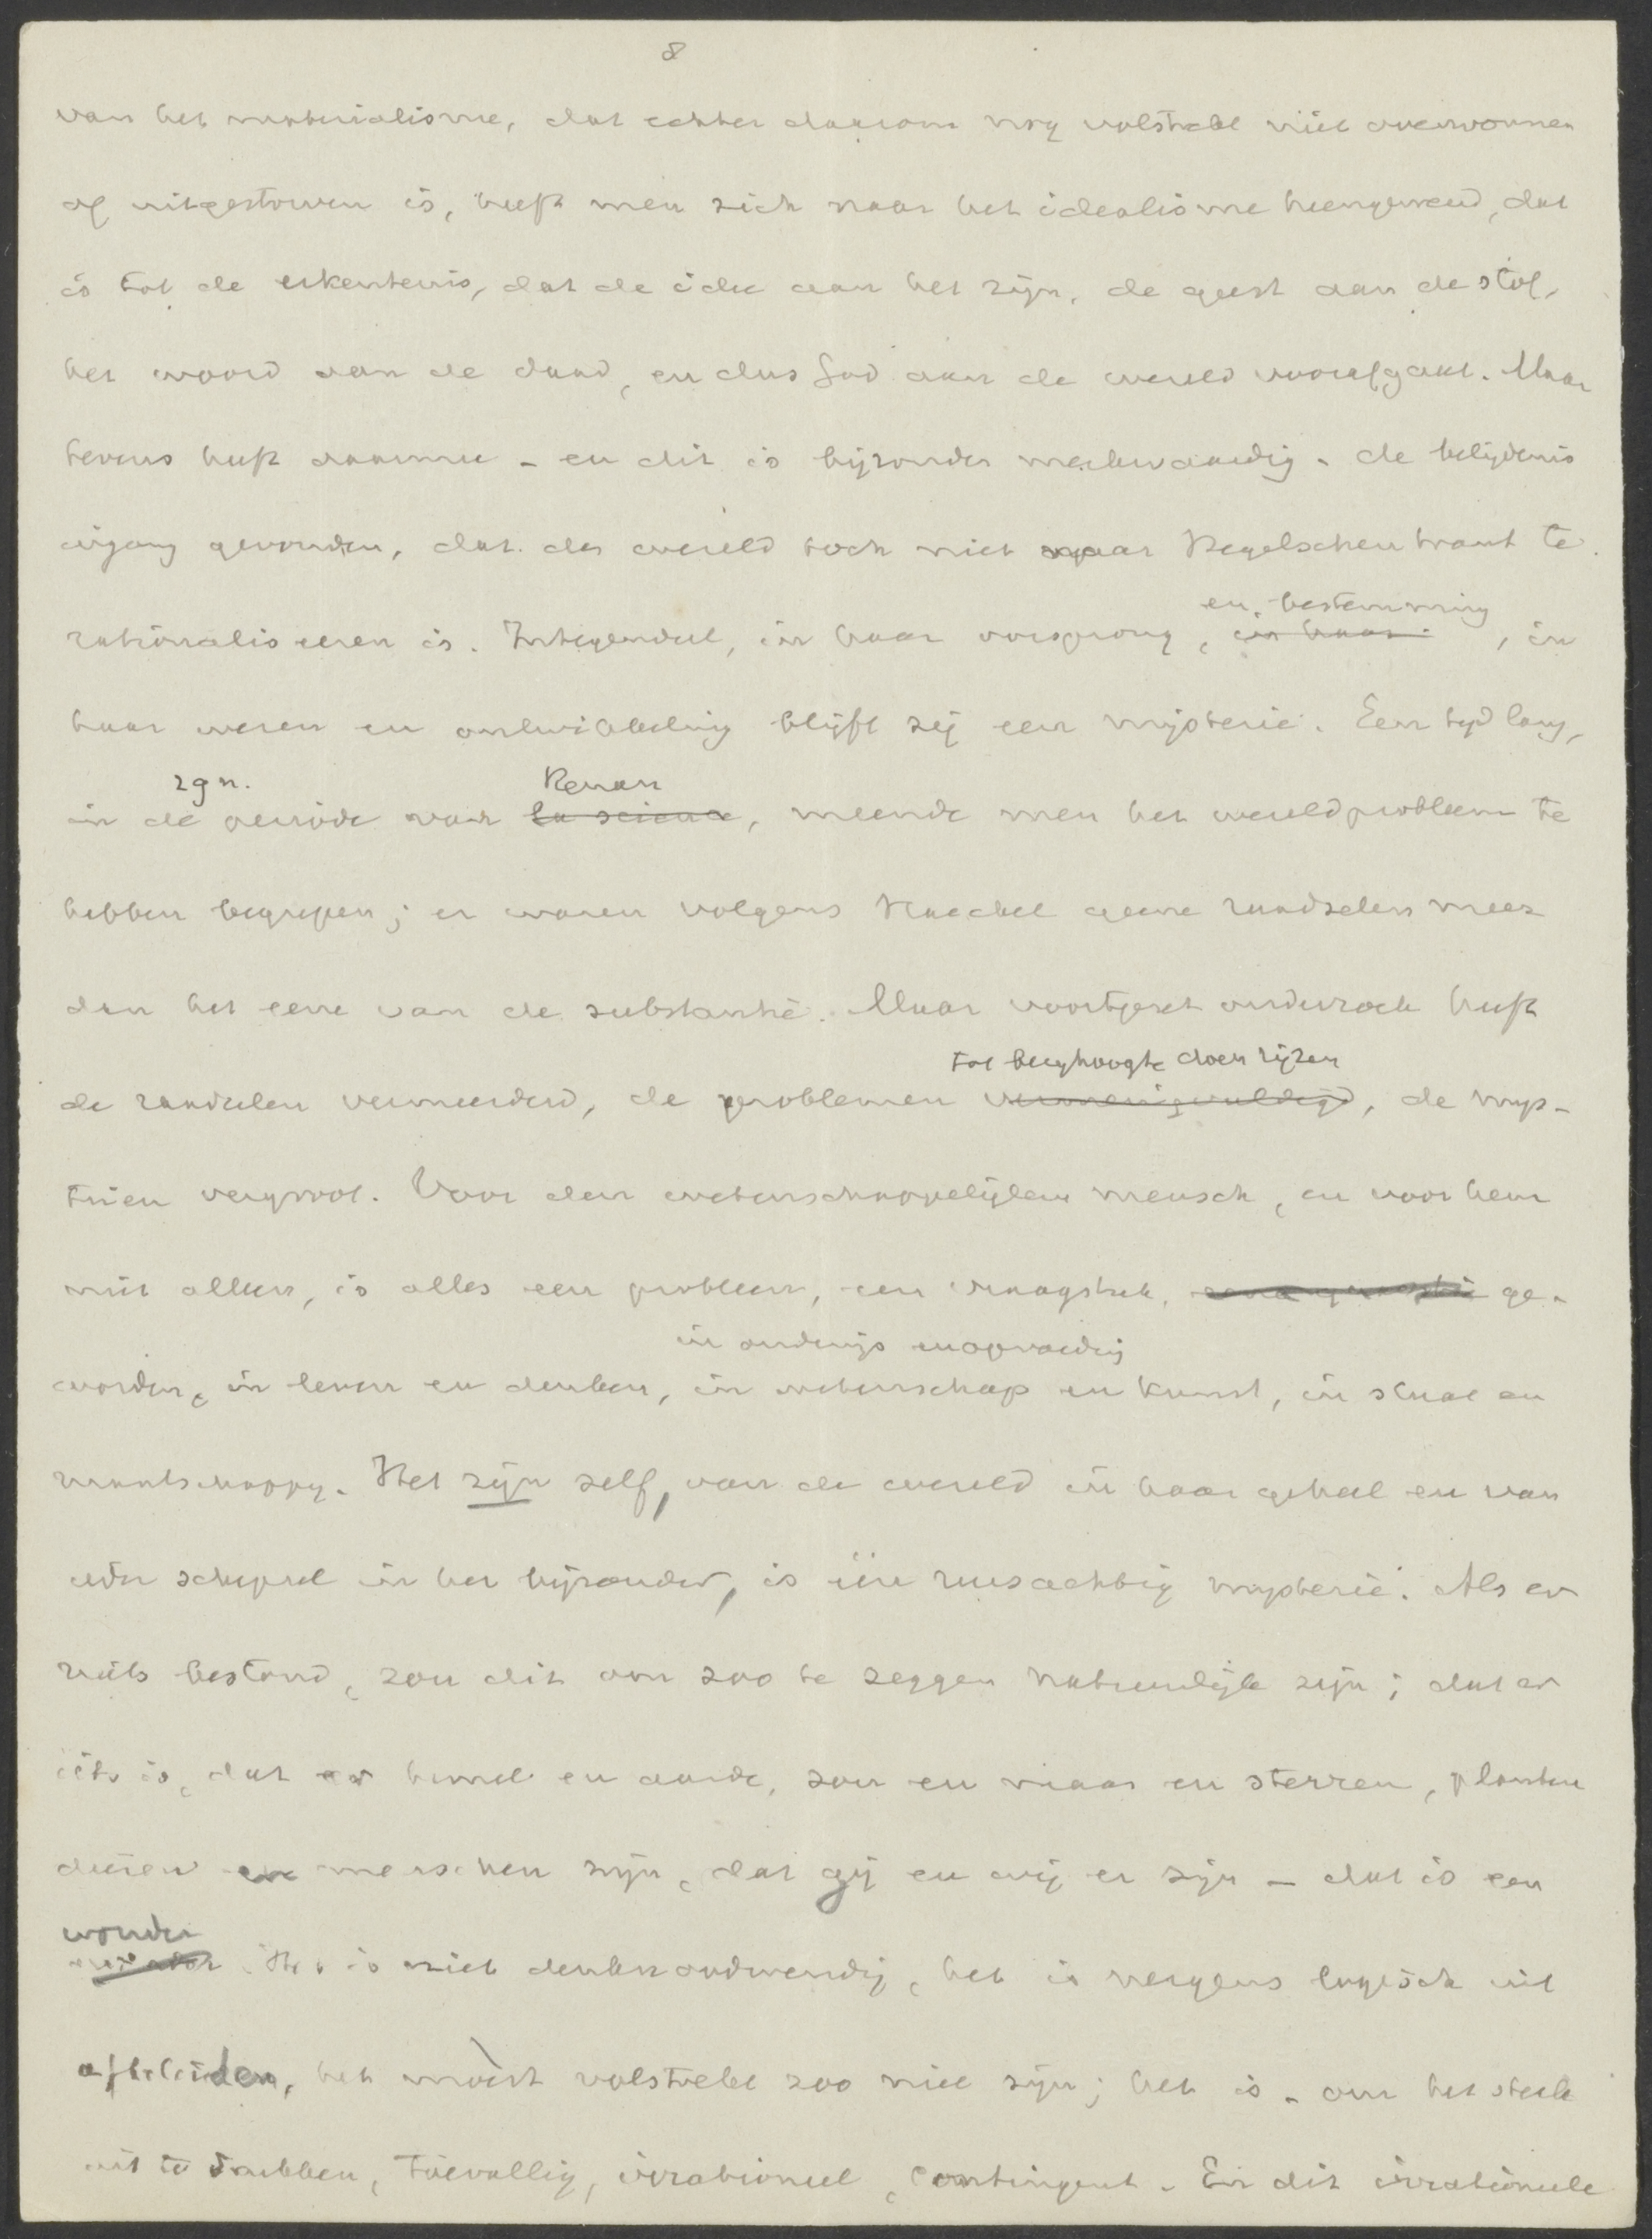 8
van het materialisme, dat echter daarom nog volstrekt niet overwonnen
of uitgestorven is, heeft men zich naar het idealisme heengewend, dat
is tot de erkentenis, dat de idee aan het zijn, de geest aan de stof,
het woord aan de daad, en dus God aan de wereld voorafgaat. Maar
tevens heeft daarmee - en dit is bijzonder merkwaardig - de belijdenis
ingang gevonden, dat de wereld toch niet naar Hegelschen trant te
en bestemming
rationaliseeren is. Integendeel, in haar oorsprong, in haar , in
haar wezen en ontwikkeling blijft zij een mysterie. Een tijd lang,
zgn. Renan
in de periode van la science, meende men het wereldprobleem te
hebben begrepen; er waren volgens Haeckel geene raadselen meer
dan het eene van de substantie. Maar voortgezet onderzoek heeft
tot berghoogte doen rijzen
de raadselen vermeerderd, de problemen vermenigvuldigd, de mys-
teriën vergroot. Voor den wetenschappelijken mensch, en voor hem
niet alleen, is alles een probleem, een vraagstuk, ge-
in onderwijs en opvoeding
worden, in leven en denken, in wetenschap en kunst, in staat en
maatschappij. Het zijn zelf, van de wereld in haar geheel en van
ieder schepsel in het bijzonder, is één reusachtig mysterie. Als er
niets bestond, zou dit om zoo te zeggen natuurlijk zijn; dat er
iets is, dat er hemel en aarde, zon en maan en sterren, planten
dieren en menschen zijn, dat gij en wij er zijn - dat is een
wonder
Het is niet denknoodwendig, het is nergens logisch uit
af te leiden, het mòest volstrekt zoo niet zijn; het is - om het sterk
uit te drukken, toevallig, irrationeel, contingent. En dit irrationeele